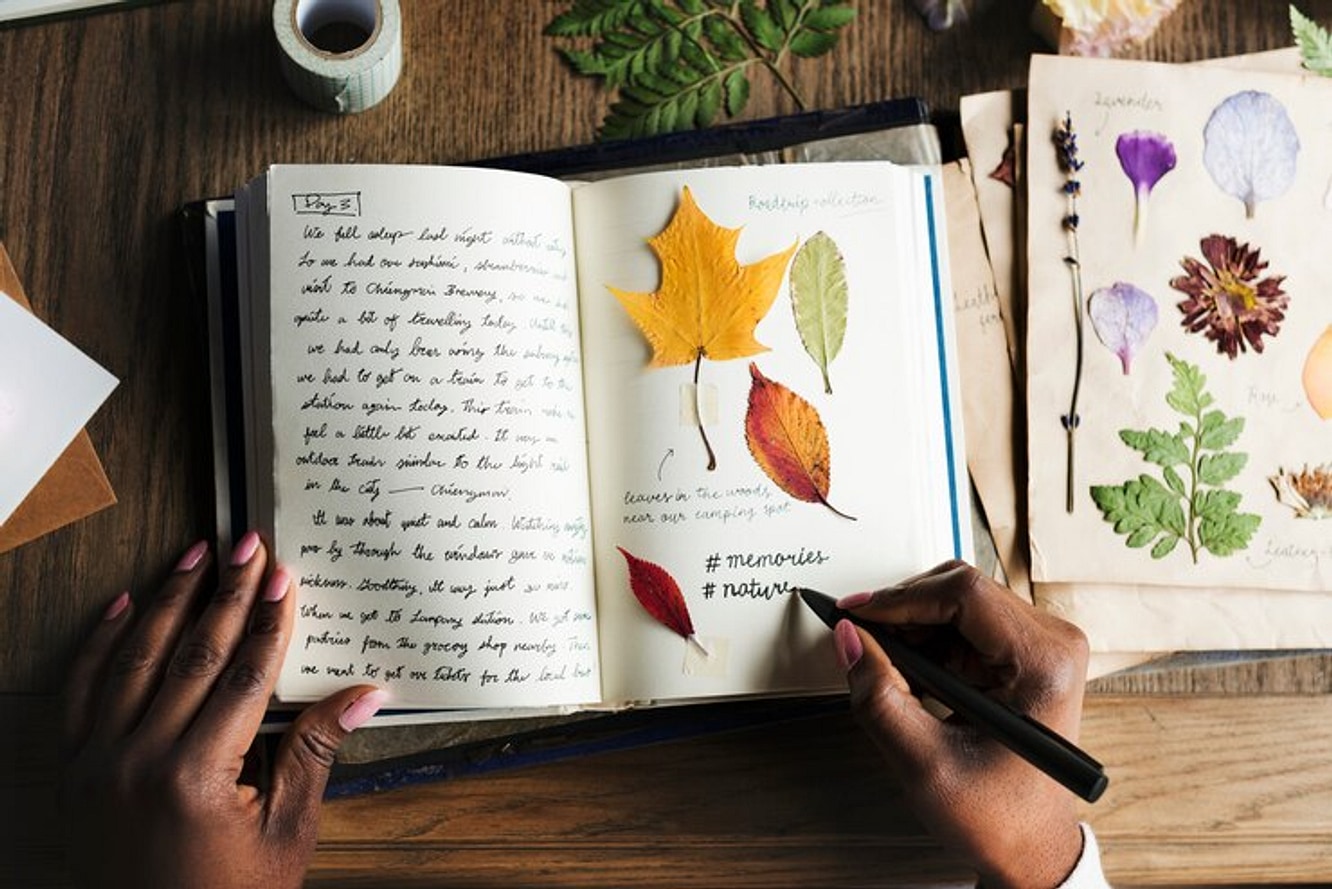 Day 3
We fell asleep last night without
So we had our sashimi, strawberries
visit to Chiangmai Brewery, so we
quite a bit of travelling today. Until
we had only been using the subway
we had to get on a train to get to the
station again today. This train
feel a little bit excited. It was an
outdoor train similar to the light rail
in the city — Chiangmai.
It was about quiet and calm. Watching
by through the windows gave
sickness. Soothing, it was just
When we got to Lampang station. We got some
pastries from the grocery shop nearby. Then
we went to get our tickets for the local
Roadtrip collection
leaves in the woods
near our camping spot
# memories
# nature
Lavender